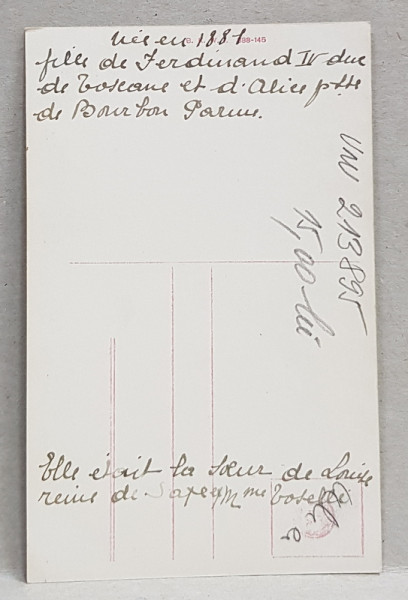 née en 1881
fille de Ferdinand IV duc
de Toscane et d'Alice psse
de Bourbon Parme.
VNV 213895
15,00 lei
Elle était la sœur de Louise
reine de Saxe Mme Toselli